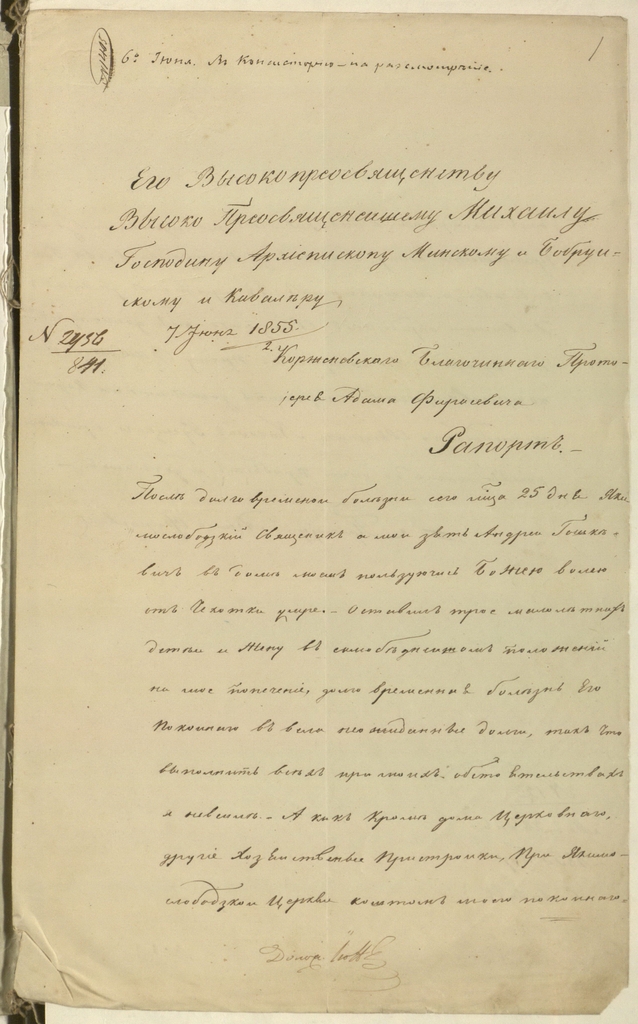 6го Июня. Въ Консисторію – на разсмотрѣніе.
1
Его Высокопреосвященству
Высоко Преосвященнѣйшему Михаилу
Господину Архіепископу Минскому и Бобруй-
скому и Кавалеру
7 Іюня 1855.
N 2456
841.
2.
Корженовскаго Благочиннаго Прото-
іерея Адама Фирасевича
Рапортъ. –
Послѣ долговременной болѣзни сего 25 дня Яки
мослободзкій Священникъ а мой зять Андрей Гошке-
вичъ въ домѣ моемъ пользуючись Божею волею
отъ Чахотки умре. – Оставилъ трое малолѣтнихъ
дѣтей и Жену въ самобѣднѣйшомъ положеніи
на мое попеченіе, долго временная болѣзнь Его
покойнаго въ вела неожиданные долги, такъ что
выполнить всѣхъ при моихъ обстоятельствахъ
я невсилѣ. – А какъ Кромѣ дома Церковнаго,
другіе Хозяйственые Пристройки, При Якимо-
слободзкой Церкви коштомъ моего покойнаго